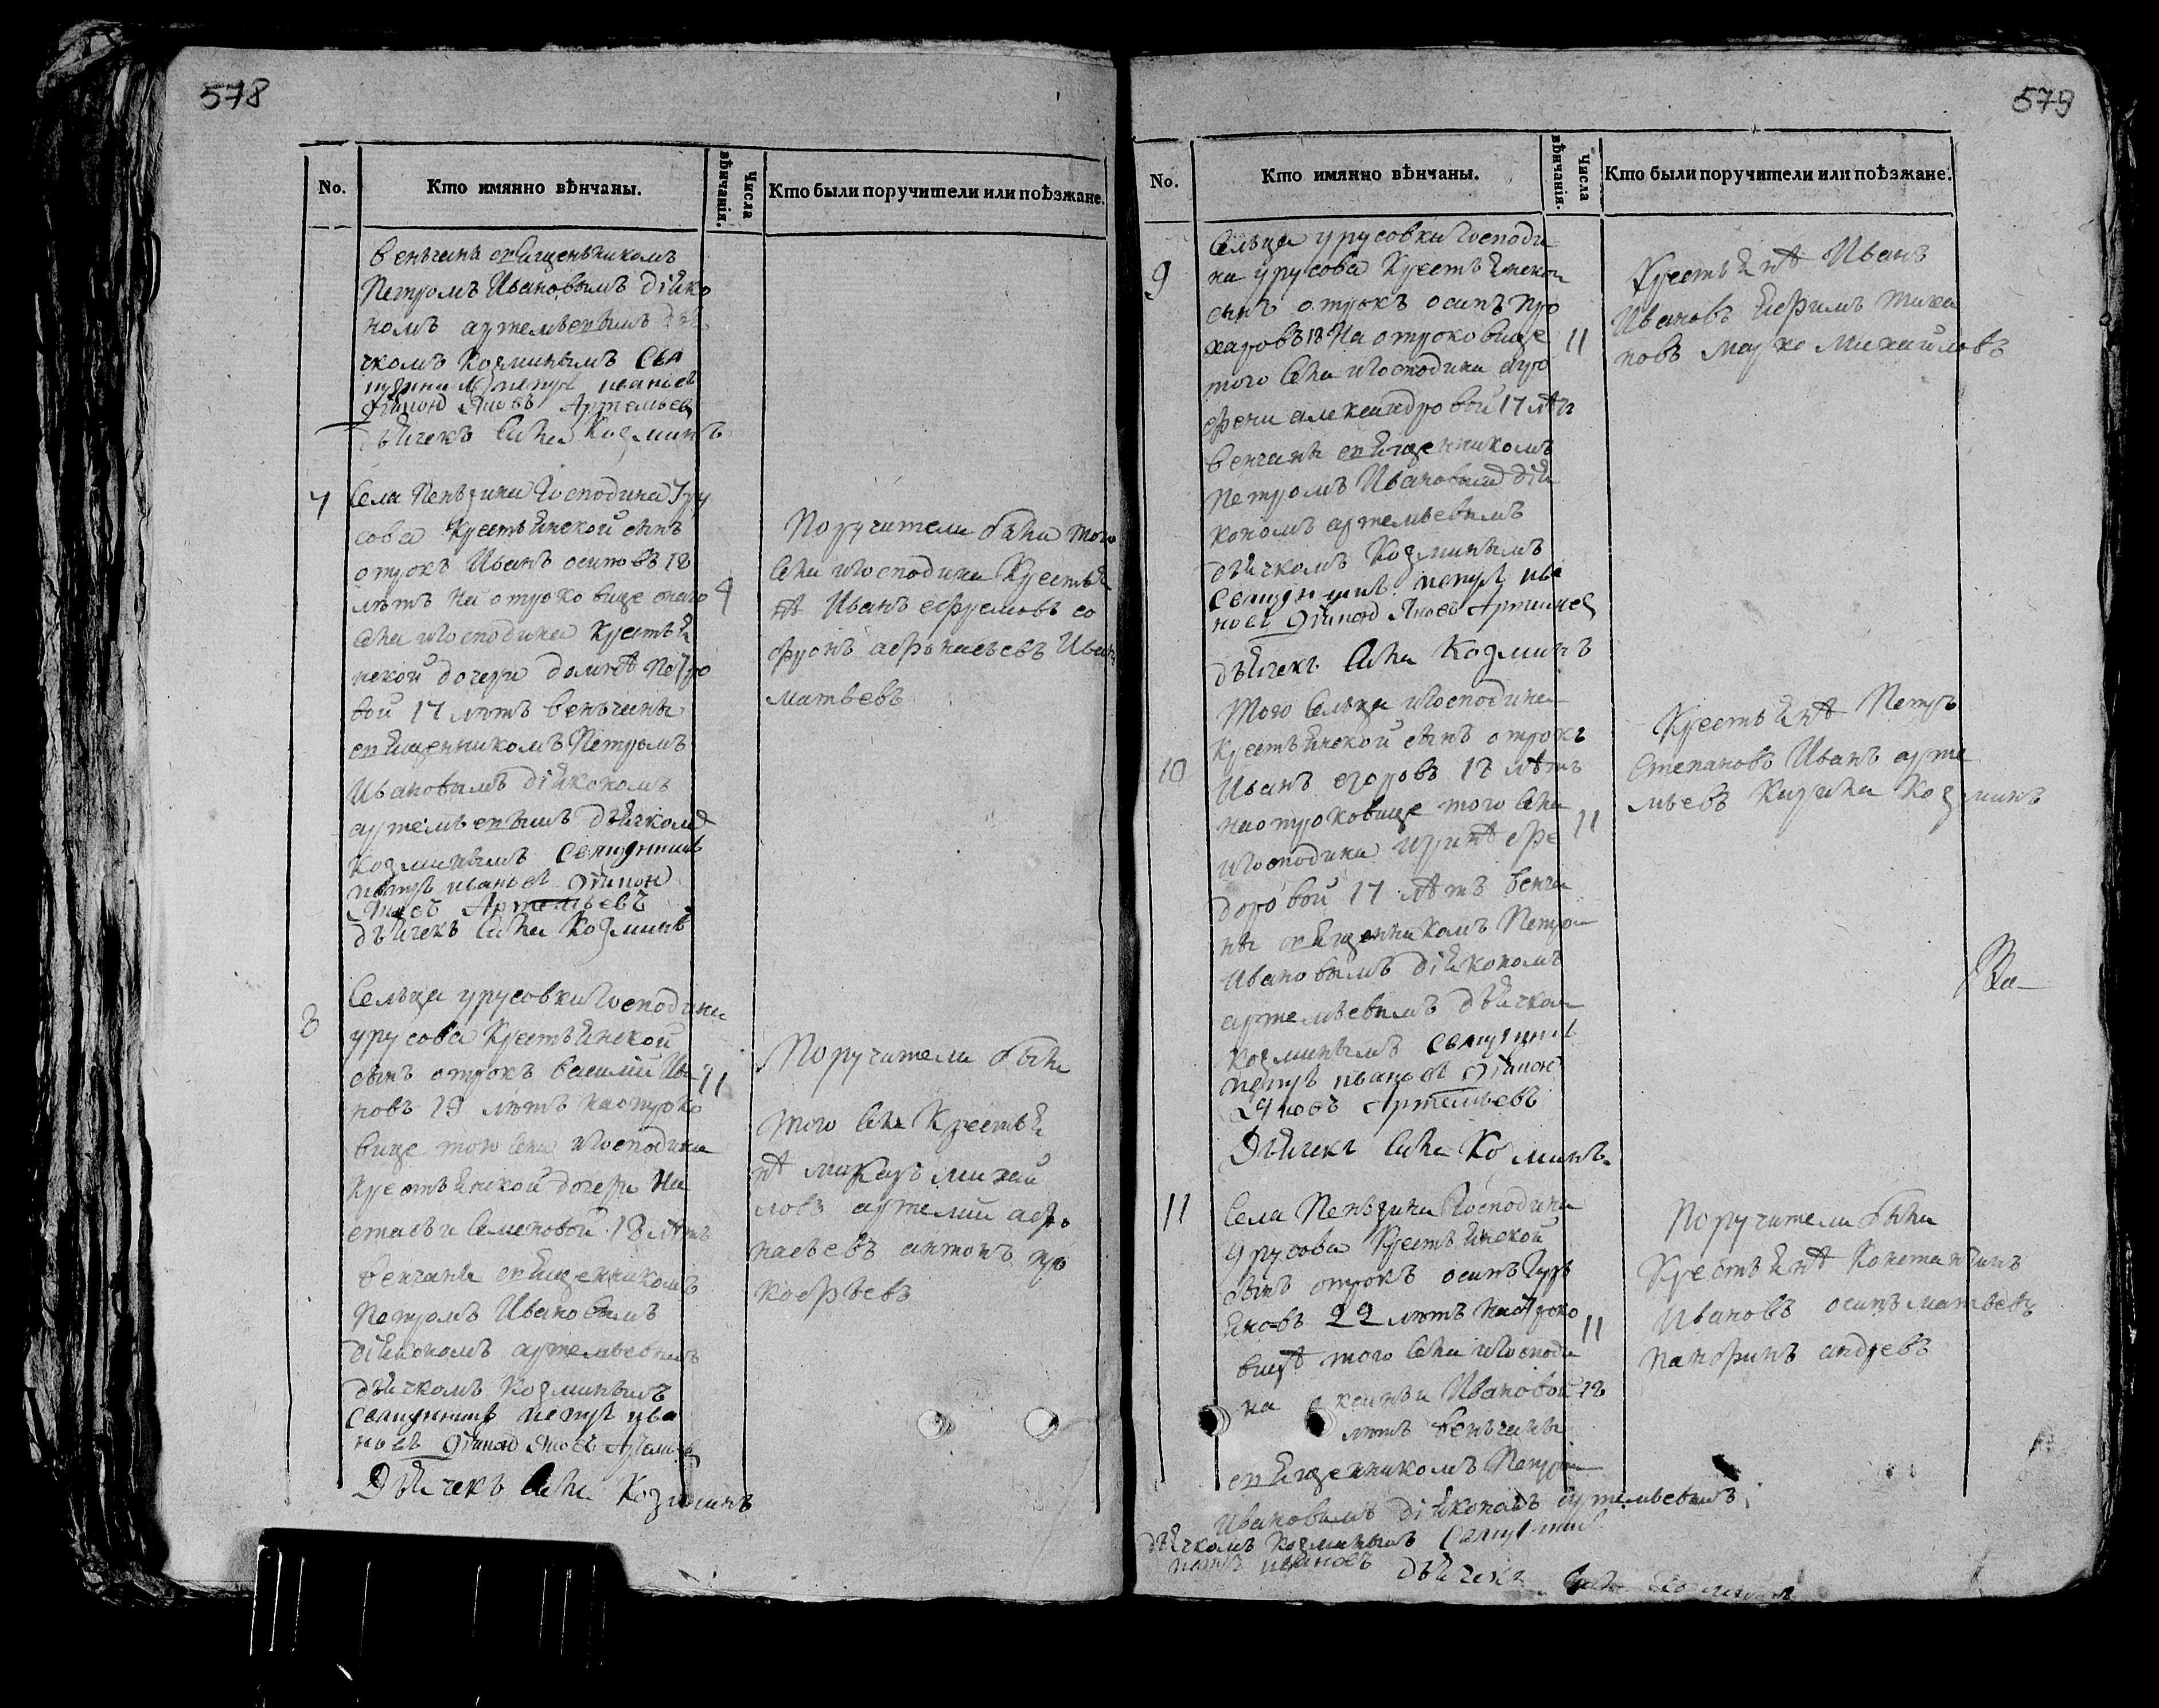 578
No.
Кто имянно вѣнчаны.
Числа вѣнчанія.
Кто были поручители или поѣзжане.
венчаны священьником
Петромъ Ивановымъ дїяко
номъ артемьевымъ дья
чкомъ Козминымъ Свя
щенникъ петръ ивановъ
діяконъ Яковъ Артемьевъ
дьячекъ Козминъ
7
Села Пеньзина Господина Уру
сова Крестьянской сынъ
отрокъ Иванъ осиповъ 18
лѣтъ на отроковице онаго
села и Господина Крестья
нской дочери домнѣ Петро
вой 17 лѣтъ веньчаны
священникомъ Петромъ
Ивановымъ дїякономъ
артемьевымъ дьячкомъ
Козминымъ Священникъ
петръ ивановъ діяконъ
Яковъ Артемьевъ
дьячекъ Козминъ
Поручители были того
села и Господина Крестья
нѣ Иванъ ефремовъ со
фронъ афонасьевъ Иванъ
матвеевъ
8
Сельца урусовки Господина
урусова Крестьянской
сынъ отрокъ василий Ива
11
новъ 19 лѣтъ на отроко
вице того села и Господина
Крестьянской дочери На
стасьи Семеновой 18 лѣтъ
венчаны священникомъ
Петромъ Ивановымъ
дїякономъ артемьевымъ
дьячкомъ Козминымъ
Священникъ петръ ива
новъ діяконъ Яковъ Артемьевъ
Дьячекъ Козминъ
Поручители были
того села Крестья
нѣ макаръ михай
ловъ артемий афо
насьевъ антонъ про
кофьевъ
579
No.
Кто имянно вѣнчаны.
Числа вѣнчанія.
Кто были поручители или поѣзжане.
9
Сельца урусовки Господи
на урусова Крестьянской
сынъ отрокъ осипъ про
харовъ 18 На отроковице
11
того села и Господина агро
фени александровой 17 лѣтъ
венчаны священникомъ
Петромъ Ивановымъ дїя
кономъ артемьевымъ
дьячкомъ Козминымъ
Священникъ петръ ива
новъ діяконъ Яковъ Артемьевъ
дьячекъ Козминъ
Крестьянѣ Иванъ
Ивановъ ефимъ тиха
новъ марко михайловъ
10
Того Сельца и Господина
Крестьянской сынъ отрокъ
Иванъ егоровъ 18 лѣтъ
на отроковице того села
11
и Господина иринѣ фе
доровой 17 лѣтъ венча
ны священникомъ Петром
Ивановымъ дїякономъ
артемьевымъ дьячком
Козминымъ Священникъ
петръ ивановъ діяконъ
Яковъ Артемьевъ
Дьячекъ Козминъ
Крестьянѣ Петръ
Степановъ Иванъ арте
мьевъ Кирила Козминъ
11
Села Пеньзина Господина
Урусова Крестьянской
сынъ отрокъ осипъ Гурь
яновъ 22 лѣтъ на отроко
11
вицѣ того села и Господи
на Ивановой 18
лѣтъ веньчаны
священникомъ Петром
Ивановымъ дїякономъ артемьевымъ
дьячкомъ Козминымъ Священникъ
петръ ивановъ дьячекъ
Поручители были
Крестьянѣ Констаньтинъ
Ивановъ осипъ матвеевъ
панфилъ андреевъ